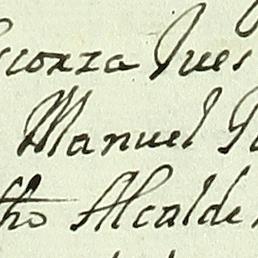 sconza Jues
Manuel
tho Alcalde